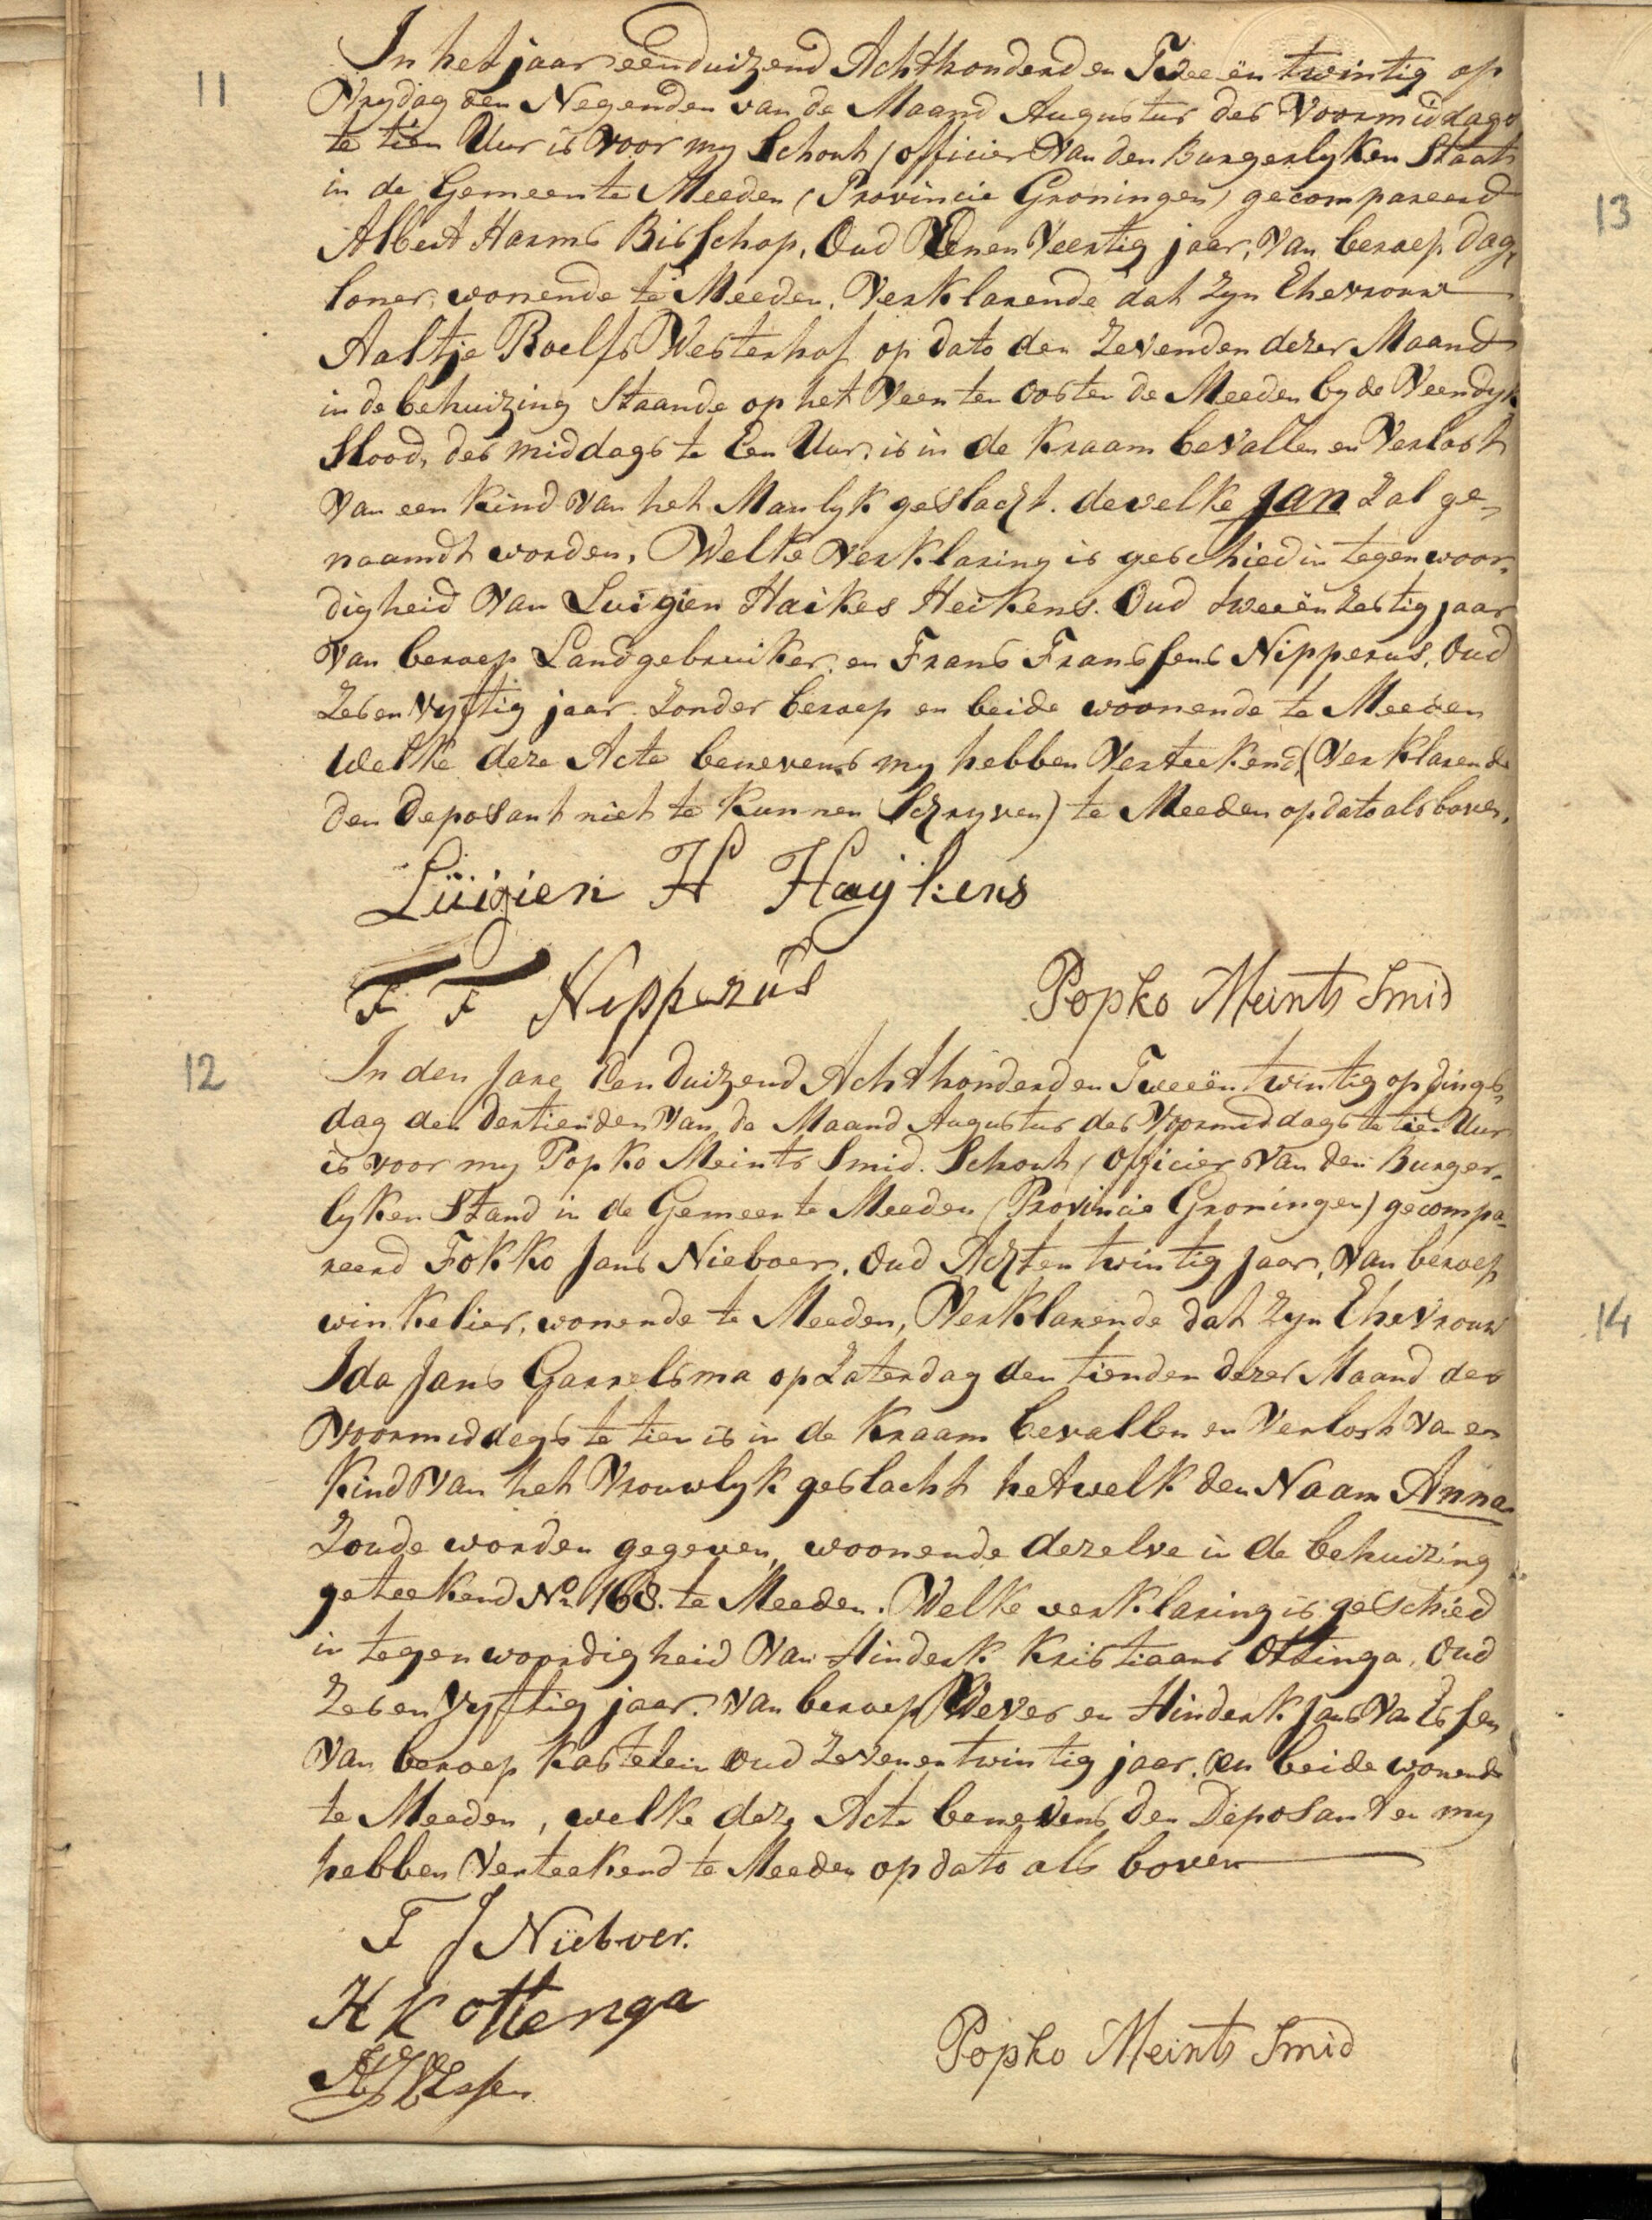 11
In het jaar eenduizend Achthonderd en Twee ën twintig op
Vrydag den Negenden van de Maand Augustus des Voormiddags
te tien Uur is voor my Schout / officier Van den Burgerlyken Staat
in de Gemeente Meeden (Provincie Groningen) gecompareerd
Albert Harms Bisschop, Oud Eenen Veertig jaar, Van beroep dag,
loner, wonende te Meeden, Verklarende dat zyn Ehevrouw
Aaltje Roelfs Westerhof op dato den Zevenden dezer Maand
in de behuizing Staande op het Veen ten oosten de Meeden by de Veendyk
Slood, des middags te Een Uur, is in de Kraam bevallen en Verlost
Van een Kind Van het Manlyk geslacht. dewelke Jan Zal ge-
naamdt worden, Welke Verklaring is geschied in tegenwoor,
digheid Van Luigien Haikes Heikens. Oud tweeën zestig jaar
Van beroep Landgebruiker, en Frans Franssens Nipperus, Oud
Zesen Vyftig jaar. Zonder beroep en beide woonende te Meeden
Welke deze Acte benevens my hebben Verteekend, (Verklarende
den Deposant niet te Kunnen Schryven) te Meeden op dato als boven,
Lüigien H Haÿkens
F F Nipperus
Popko Meints Smid
12
In den Jare Een duizend Achthonderd en Tweeën twintig op dings,
dag den dertienden Van de Maand Augustus des Voormiddags te tien Uur
is voor my Popko Meints Smid. Schout / officier Van den Burger-
lyken Stand in de Gemeente Meeden (Provincie Groningen) gecompa-
reerd Fokko Jans Nieboer, Oud Achten twintig Jaar, Van beroep
winkelier, wonende te Meeden, Verklarende dat Zyn Ehevrouw
Ida Jans Garrelsma op Zaterdag den tienden dezer Maand des
Voormiddags te tien is in de Kraam bevallen en Verlost Van en
Kind Van het Vrouwlyk geslacht hetwelk den Naam Anna
Zoude worden gegeven, woonende dezelve in de behuizing
geteekend No 168. te Meeden. Welke verklaring is geschied
in tegenwoordigheid Van Hinderk Kristiaans Ottinga, Oud
Zesen Vyftig jaar. Van beroep Wever en Hinderk Jans Van Essen
Van beroep Kastelein Oud Zevenentwintig jaar. en beide wonende
te Meeden, welke deze Acte benevens den Deposant en my
hebben Verteekend te Meeden op dato als boven
F J Nieboer.
H K ottenga
Popko Meints Smid
13
14